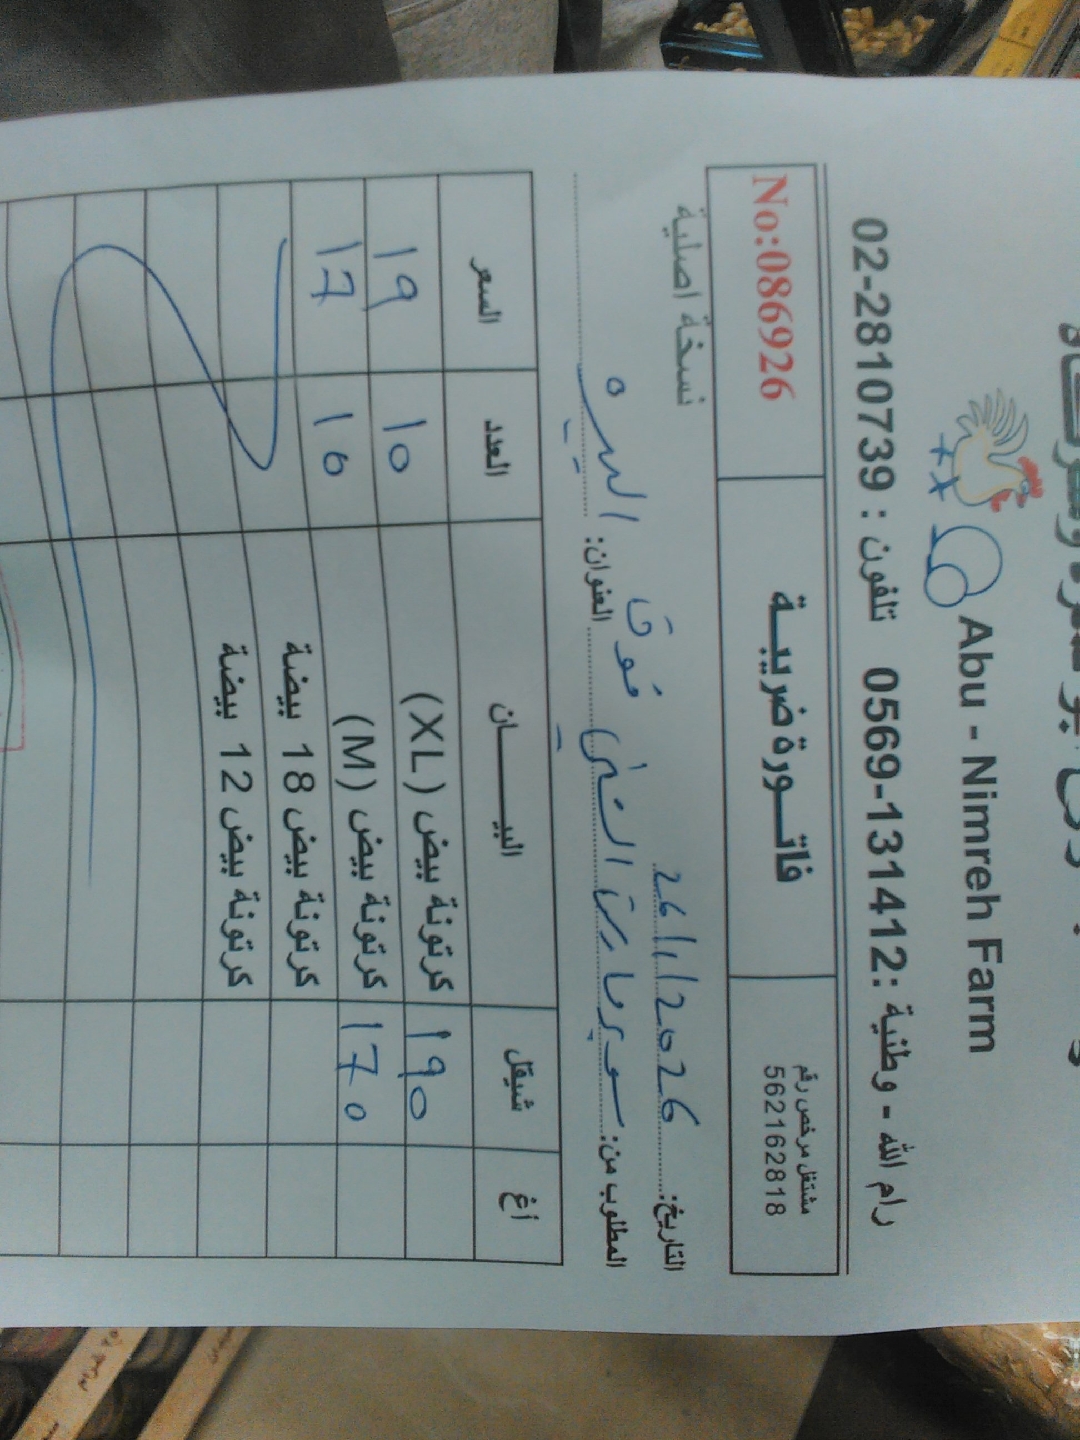 Abu - Nimreh Farm
رام الله - وطنية : 0569-131412 تلفون : 02-2810739
مشتغل مرخص رقم
562162818
فاتـورة ضريبـة
No:086926
نسخة اصلية
التاريخ: 26/1/2026
المطلوب من: سوبرماركت العنوان: البيره
أغ شيقل البيـــــان العدد السعر
190 كرتونة بيض (XL) 10 19
170 كرتونة بيض (M) 10 17
كرتونة بيض 18 بيضة
كرتونة بيض 12 بيضة